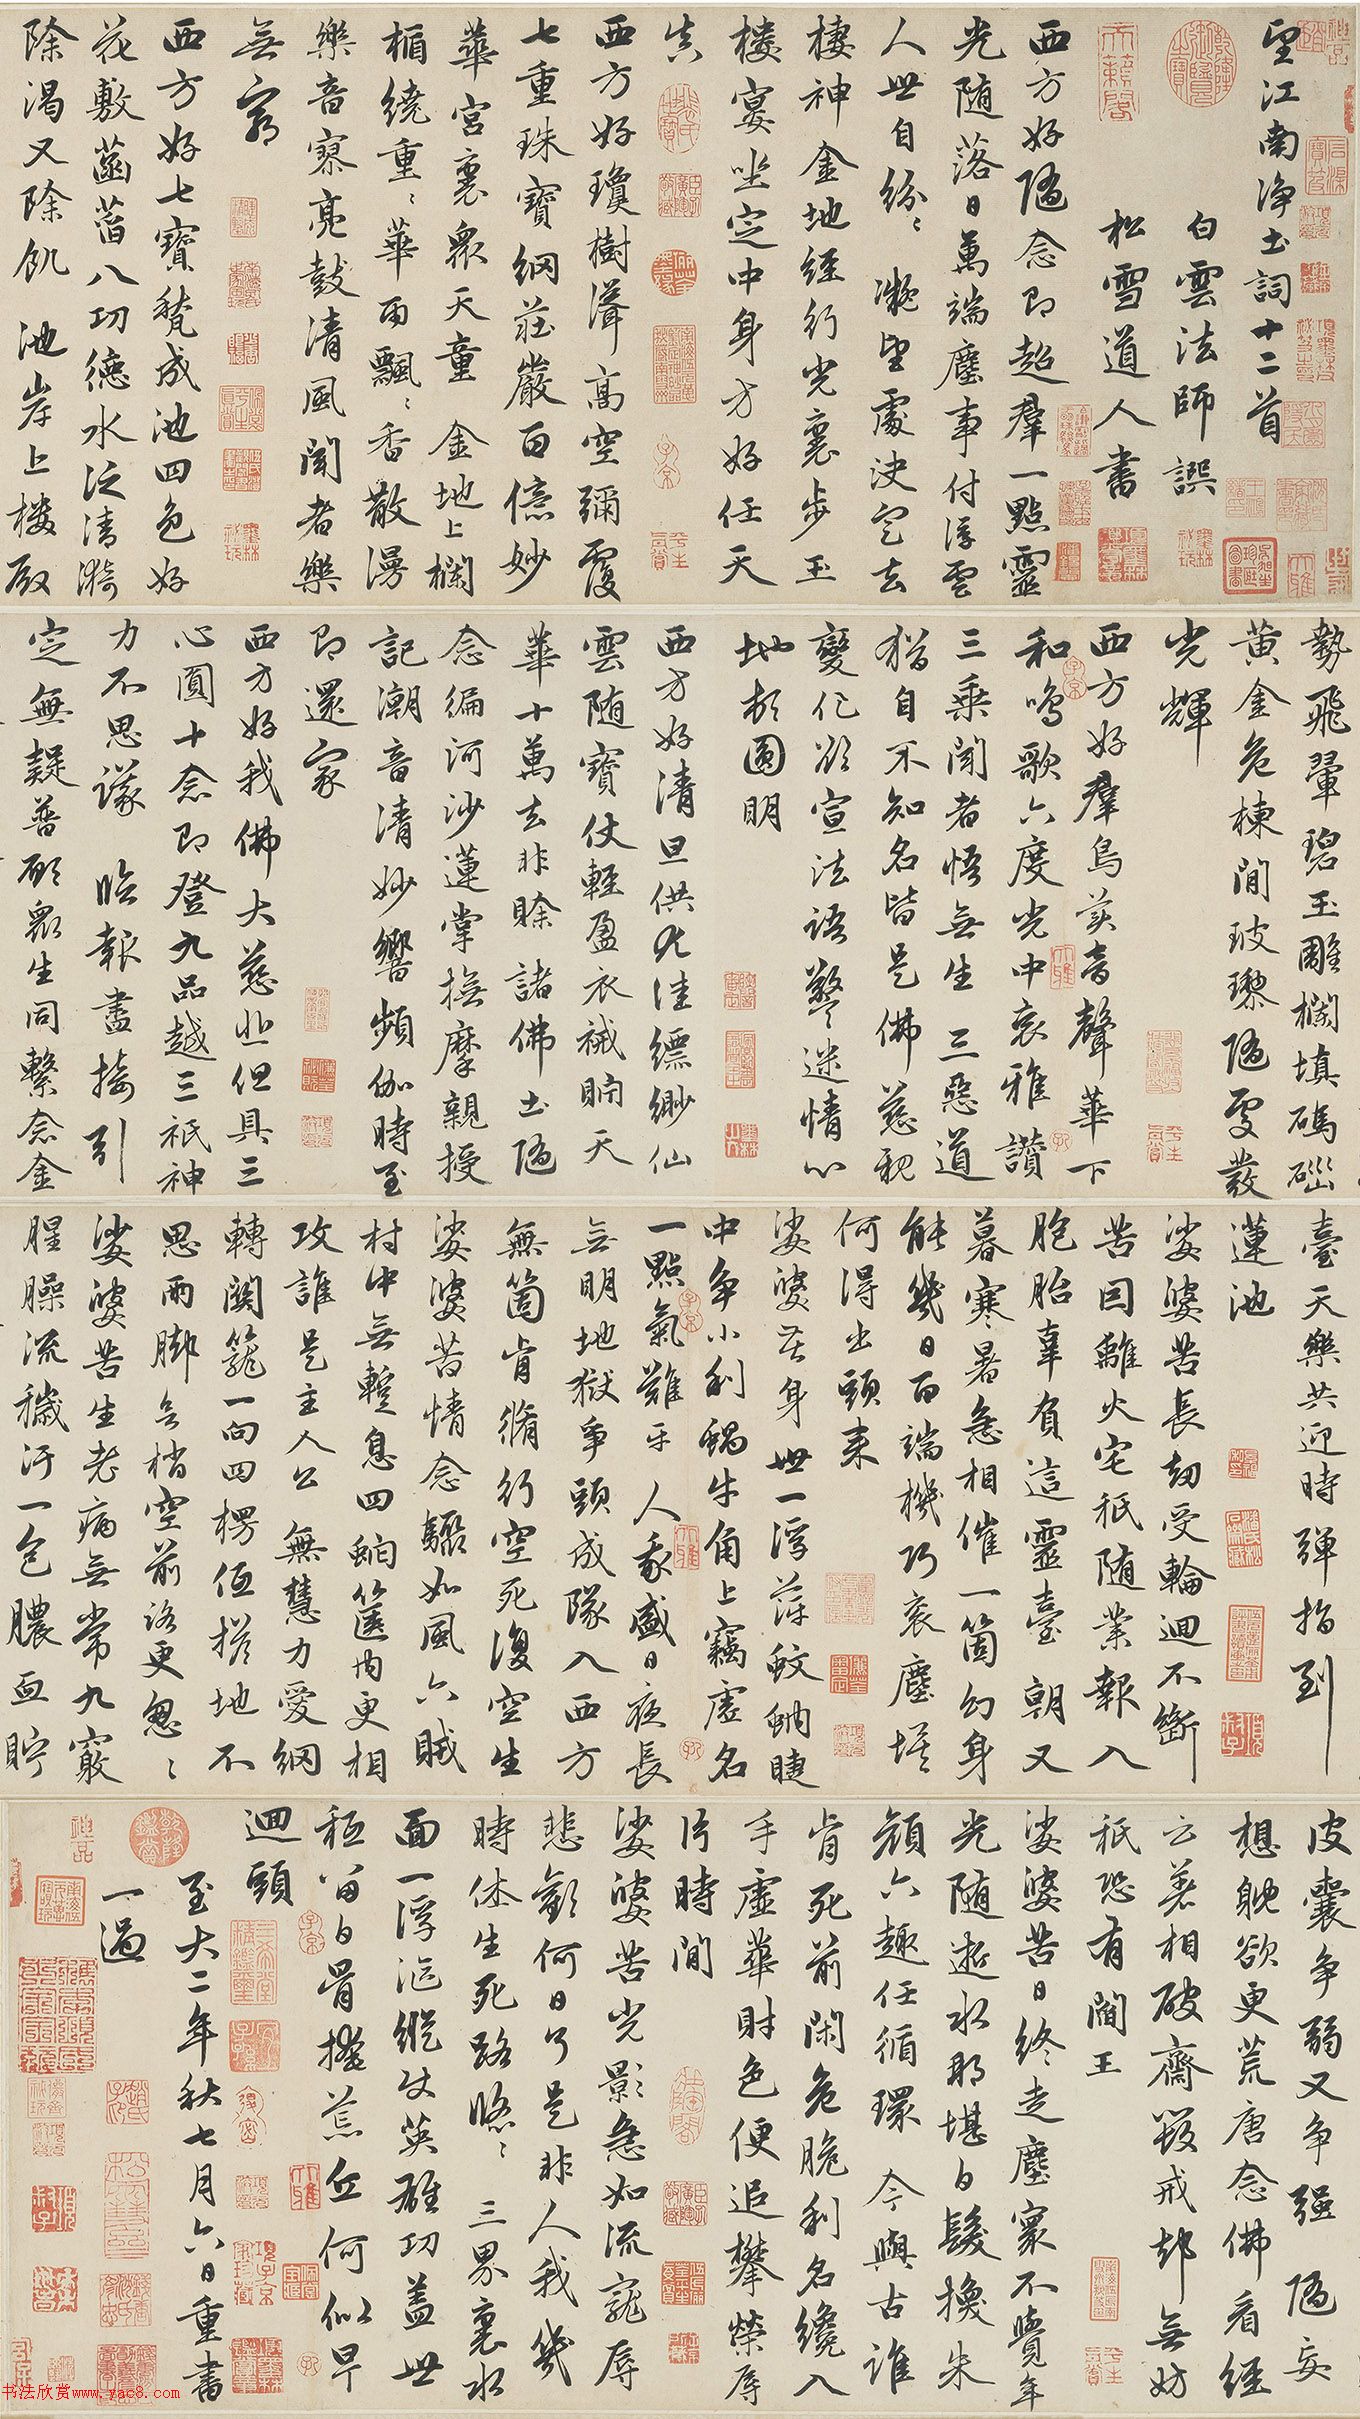 望江南净土詞十二首
白雲法師譔
松雪道人書
西方好随念即超羣一點靈
光随落日萬端塵事付浮雲
人世自紛〻 凝望處決定去
棲神金地經行光裏步玉
樓宴坐定中身方好任天
真
西方好瓊樹聳高空彌覆
七重珠寶網莊嚴百億妙
華宮裏衆天童 金地上欄
楯繞重〻華雨飄〻香散漫
樂音寥亮鼓清風聞者樂
無窮
西方好七寶甃成池四色好
花敷菡萏八功德水泛清漪
除渴又除飢 池岸上樓殿
勢飛翬碧玉雕欄填碼碯
黄金危棟間玻瓈随處發
光輝
西方好羣鳥美音聲華下
和鳴歌六度光中哀雅讃
三乘聞者悟無生 三惡道
猶自不知名皆是佛慈親
變化欲宣法語警迷情心
地頓圓明
西方好清旦供尤佳縹緲仙
雲随寶仗輕盈衣裓貯天
華十萬去非賒 諸佛土随
念徧河沙蓮掌撫摩親授
記潮音清妙響頻伽時至
即還家
西方好我佛大慈悲但具三
心圓十念即登九品越三祇神
力不思議 臨報盡接引
定無疑普願衆生同繫念金
臺天樂共迎時彈指到
蓮池
娑婆苦長劫受輪迴不斷
苦因離火宅秖随業報入
胞胎辜負這靈臺 朝又
暮寒暑急相催一箇幻身
能幾日百端機巧衮塵埃
何得出頭來
娑婆苦身世一浮萍蚊蚋睫
中争小利蝸牛角上竊虚名
一點氣難平 人我盛日夜長
无明地獄争頭成隊入西方
無箇肯脩行空死復空生
娑婆苦情念驟如風六賊
村中無蹔息四蛇篋内更相
攻誰是主人公 無慧力愛網
轉關籠一向四楞但搭地不
思兩脚无梢空前路更怱〻
娑婆苦生老病無常九竅
腥臊流穢汙一包膿血貯
皮囊争弱又争强 随妄
想躭欲更荒唐念佛看經
云著相破齋毁戒却無妨
秖恐有閻王
娑婆苦日終走塵寰不覺年
光随逝水那堪白髮換朱
顔六趣任循環 今與古誰
肯死前閑危脆利名纔入
手虚華財色便追攀榮辱
片時間
娑婆苦光影急如流寵辱
悲歡何日了是非人我幾
時休生死路悠〻 三界裏水
面一浮漚縱使英雄功蓋世
秪留白骨掩荒丘何似早
迴頭
至大二年秋七月六日重書
一過
书法欣赏www.yac8.com